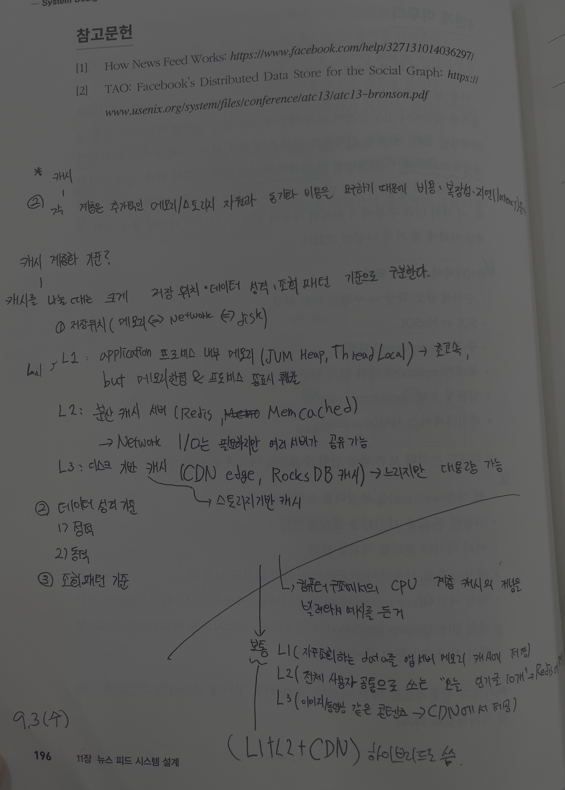 System Desig
참고문헌
[1] How News Feed Works: https://www.facebook.com/help/327131014036297/
[2] TAO: Facebook's Distributed Data Store for the Social Graph: https://
www.usenix.org/system/files/conference/atc13/atc13-bronson.pdf
* 캐시
② 각 계층은 추가적인 메모리/스토리지 자원과 동기화 비용을 요구하기 때문에 비용·복잡성·지연
캐시 계층화 기준?
캐시를 나눌 때는 크게 저장 위치·데이터 성격·조회 패턴 기준으로 구분한다.
① 저장위치 (메모리 <=> Network <=> disk)
L1 : application 프로세스 내부 메모리 (JVM Heap, Thread Local) → 초고속,
but 메모리한정 & 프로세스 종료시
L2 : 분산 캐시 서버 (Redis, Memcached)
→ Network I/O는 필요하지만 여러 서버가 공유 가능
L3 : 디스크 기반 캐시 (CDN edge, Rocks DB 캐시) → 느리지만 대용량 가능
→ 스토리지기반 캐시
② 데이터 성격 기준
1) 정적
2) 동적
③ 조회패턴 기준
컴퓨터 구조에서의 CPU 계층 캐시의 개념을
빌려와서 예시를 든거
보통 L1 (자주조회하는 data를 앱 서버 메모리 캐시에 저장)
L2 (전체 사용자 공통으로 쓰는 "오늘 인기글 10개" → Redis
L3 (이미지/동영상 같은 콘텐츠 → CDN에서 저장)
(L1+L2+CDN) 하이브리드로 씀.
9.3(수)
196 11장 뉴스 피드 시스템 설계